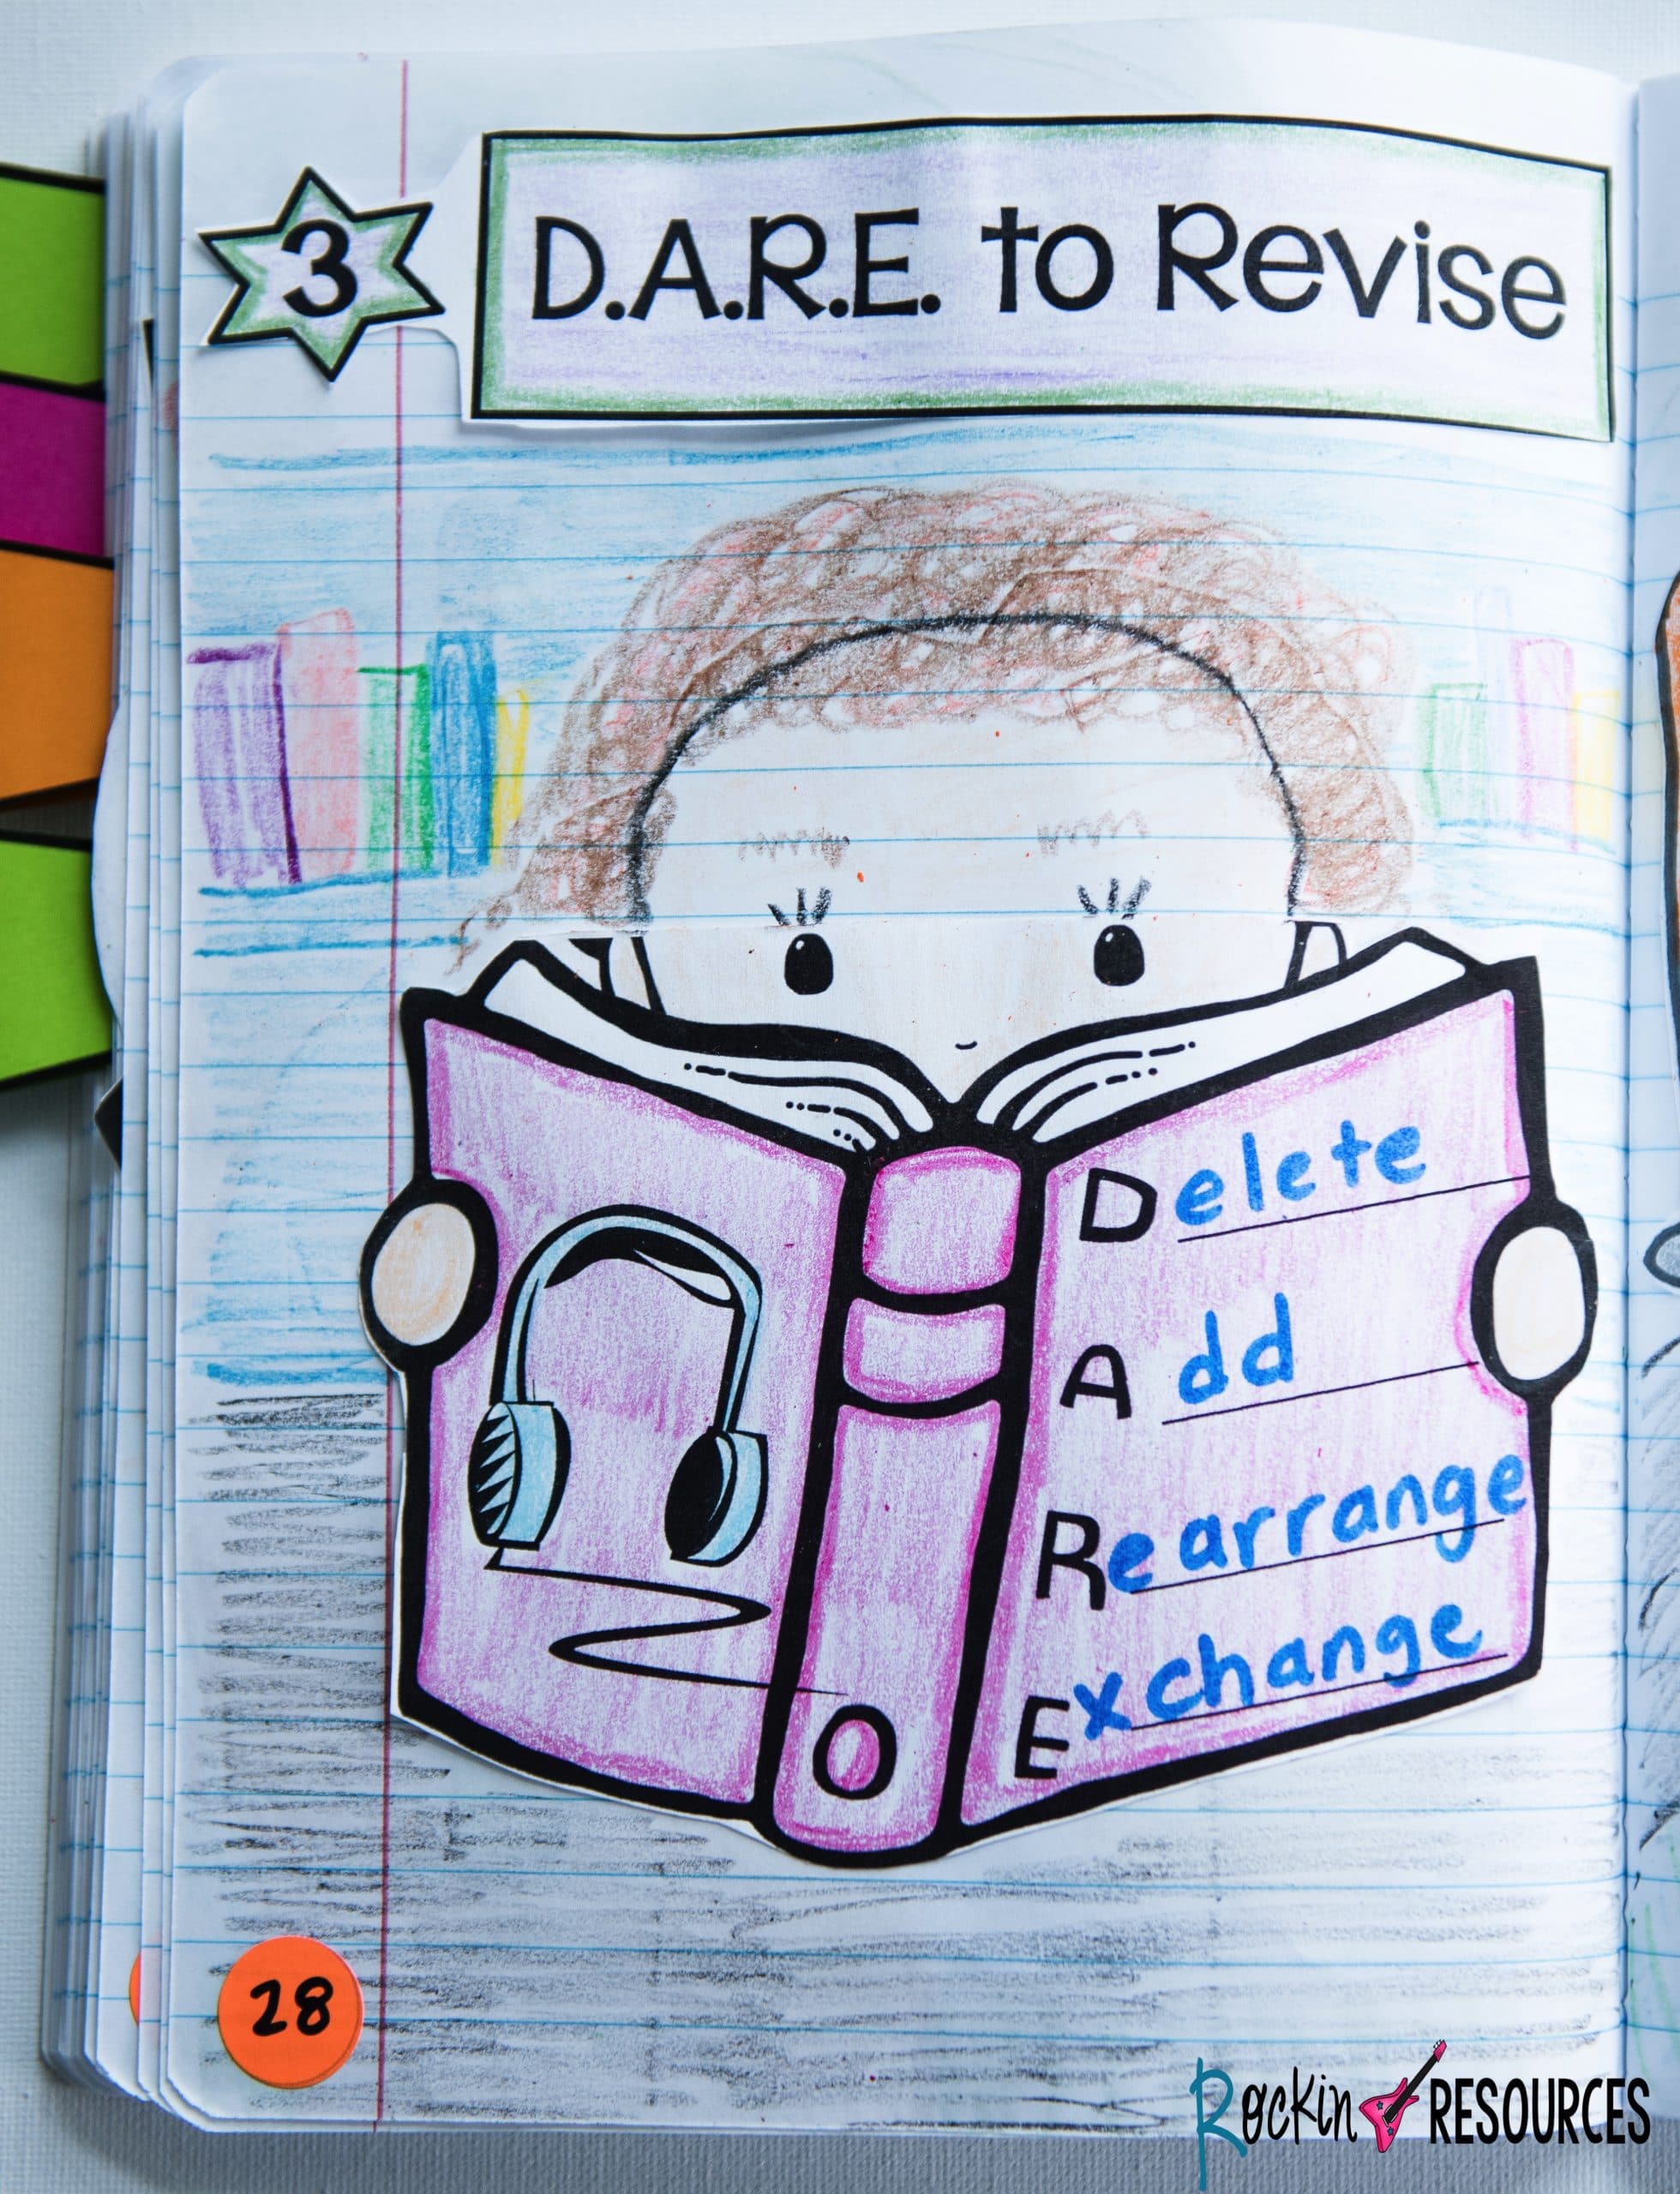 3
D.A.R.E. to Revise
Delete
Add
Rearrange
Exchange
O
28
Rockin RESOURCES